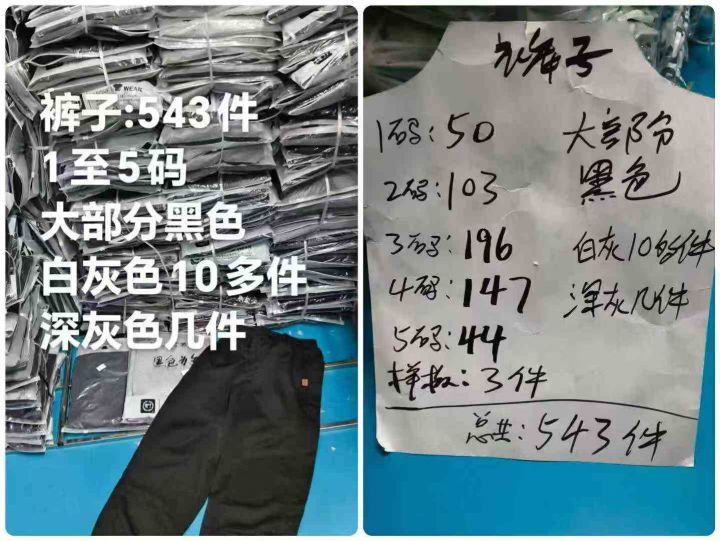 WEAR
裤子:543件
1至5码
大部分黑色
白灰色10多件
深灰色几件
裤子
1码:50 大部分
2码:103 黑色
3码:196 白灰10多件
4码:147 深灰几件
5码:44
样板:3件
总共:543件